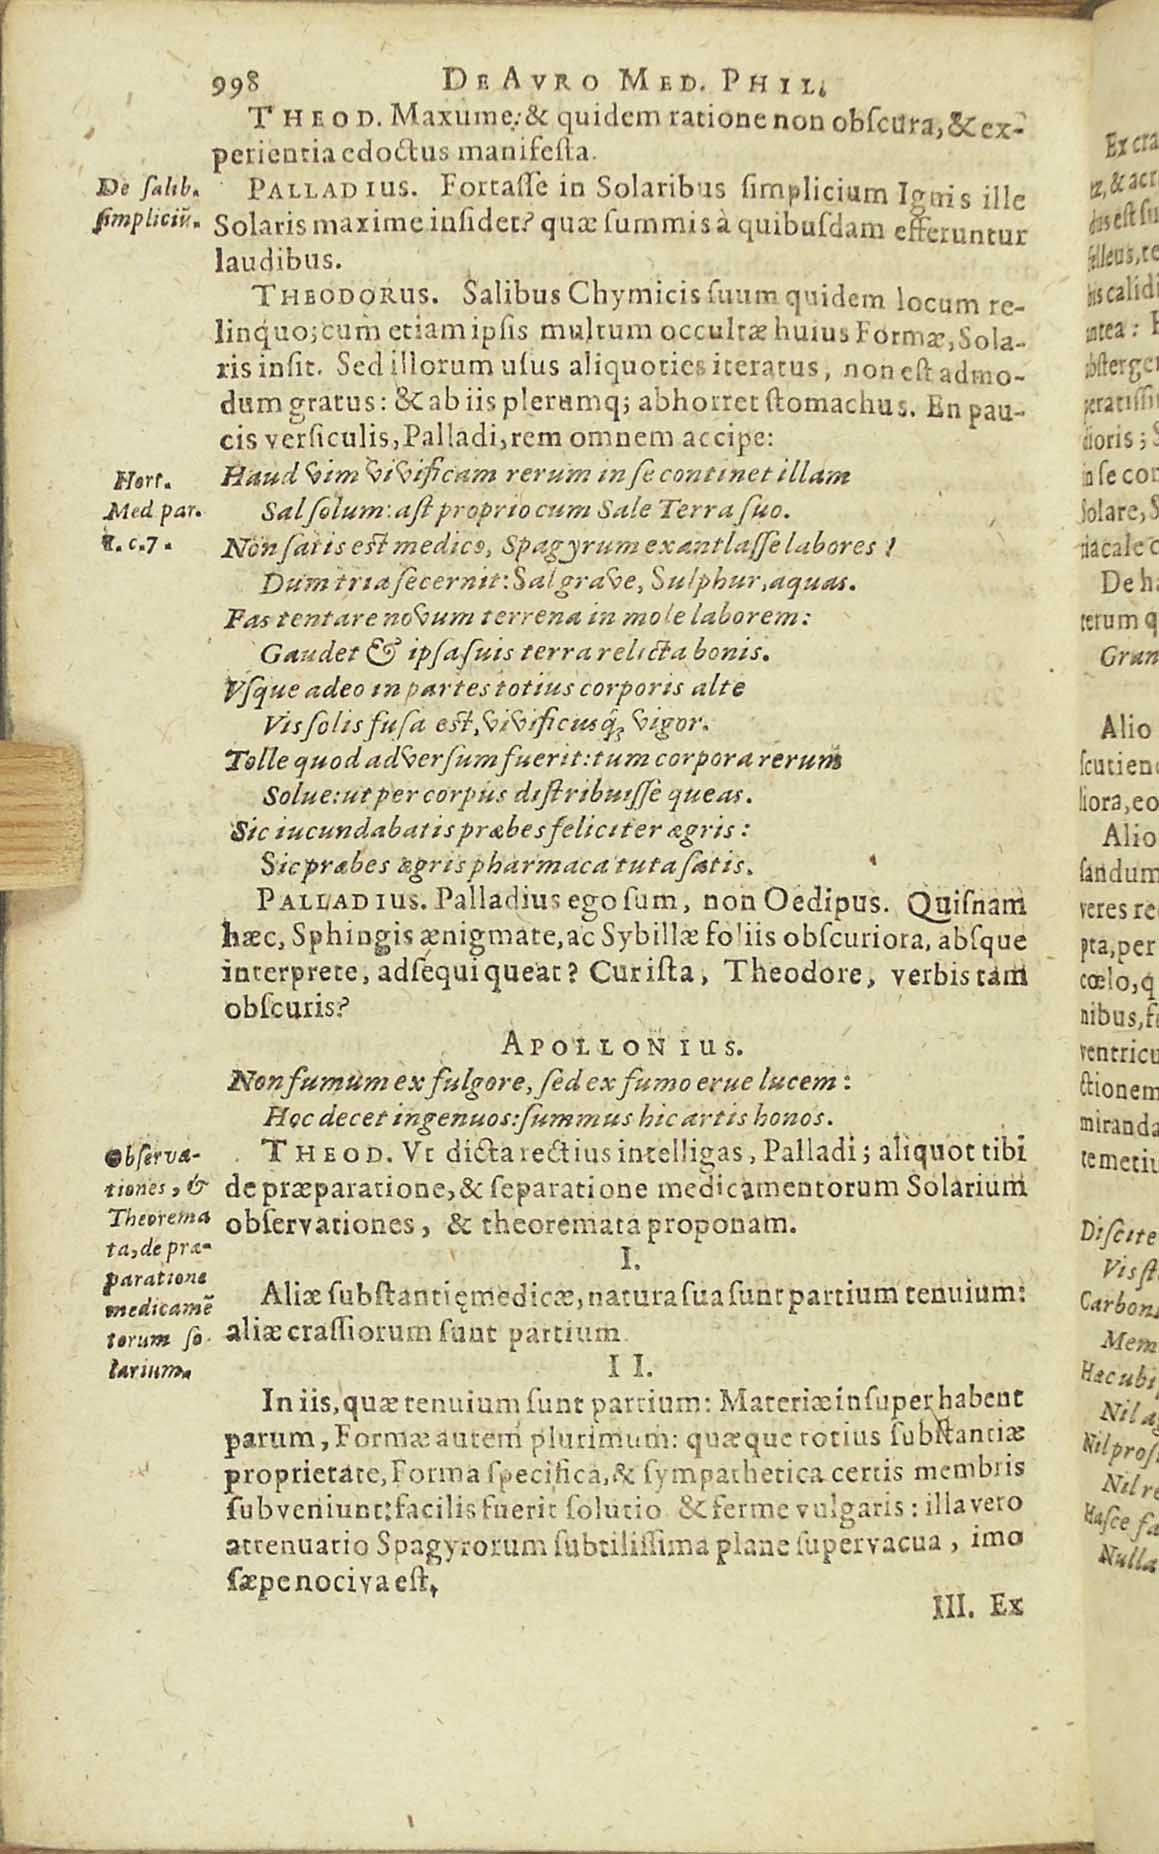 998 DE AVRO MED. PHIL.
THEOD. Maxume: & quidem ratione non obſcura, & ex-
perientia edoctus manifeſta.
De ſalib.
ſimpliciũ.
PALLADIUS. Fortaſſe in Solaribus ſimplicium Ignis ille
Solaris maxime inſidet? quæ summis à quibuſdam efferuntur
laudibus.
THEODORUS. Salibus Chymicis ſuum quidem locum re-
linquo; cum etiam ipſis multum occultæ huius Formæ, Sola-
ris inſit. Sed illorum uſus aliquoties iteratus, non eſt admo-
dum gratus: & ab iis plerumq; abhorret ſtomachus. En pau-
cis verſiculis, Palladi, rem omnem accipe:
Hort.
Med par.
1. c. 7.
Haud vim vivificam rerum in ſe continet illam
Sal ſolum: aſt proprio cum Sale Terra ſuo.
Non ſatis eſt medico, Spagyrum exantlaſſe labores!
Dum tria ſecernit: Sal grave, Sulphur, aquas.
Fas tentare novum terrena in mole laborem:
Gaudet & ipſa ſuis terra relicta bonis.
Vſque adeo in partes totius corporis alte
Vis ſolis fuſa eſt, vivificusq; vigor.
Tolle quod adverſum fuerit: tum corpora rerum
Solue: ut per corpus diſtribuiſſe queas.
Sic iucunda batis præbes feliciter ægris:
Sic præbes ægris pharmaca tuta ſatis.
PALLADIUS. Palladius ego ſum, non Oedipus. Quiſnam
hæc, Sphingis ænigmate, ac Sybillæ foliis obſcuriora, abſque
interprete, adſequi queat? Cur iſta, Theodore, verbis tam
obſcuris?
APOLLONIUS.
Non fumum ex fulgore, ſed ex fumo erue lucem:
Hoc decet ingenuos: ſummus hic artis honos.
Obſerva-
tiones, &
Theorema
ta, de præ-
paratione
medicamẽ
torum ſo-
larium.
THEOD. Vt dicta rectius intelligas, Palladi; aliquot tibi
de præparatione, & ſeparatione medicamentorum Solarium
obſervationes, & theoremata proponam.
I.
Aliæ ſubſtantię medicæ, natura ſua ſunt partium tenuium:
aliæ craſſiorum ſunt partium.
II.
In iis, quæ tenuium ſunt partium: Materiæ inſuper habent
parum, Formæ autem plurimum: quæque totius ſubſtantiæ
proprietate, Forma ſpecifica, & ſympathetica certis membris
ſubveniunt: facilis fuerit ſolutio & ferme vulgaris: illa vero
attenuatio Spagyrorum ſubtiliſſima plane ſupervacua, imo
ſæpe nociva eſt.
III. Ex